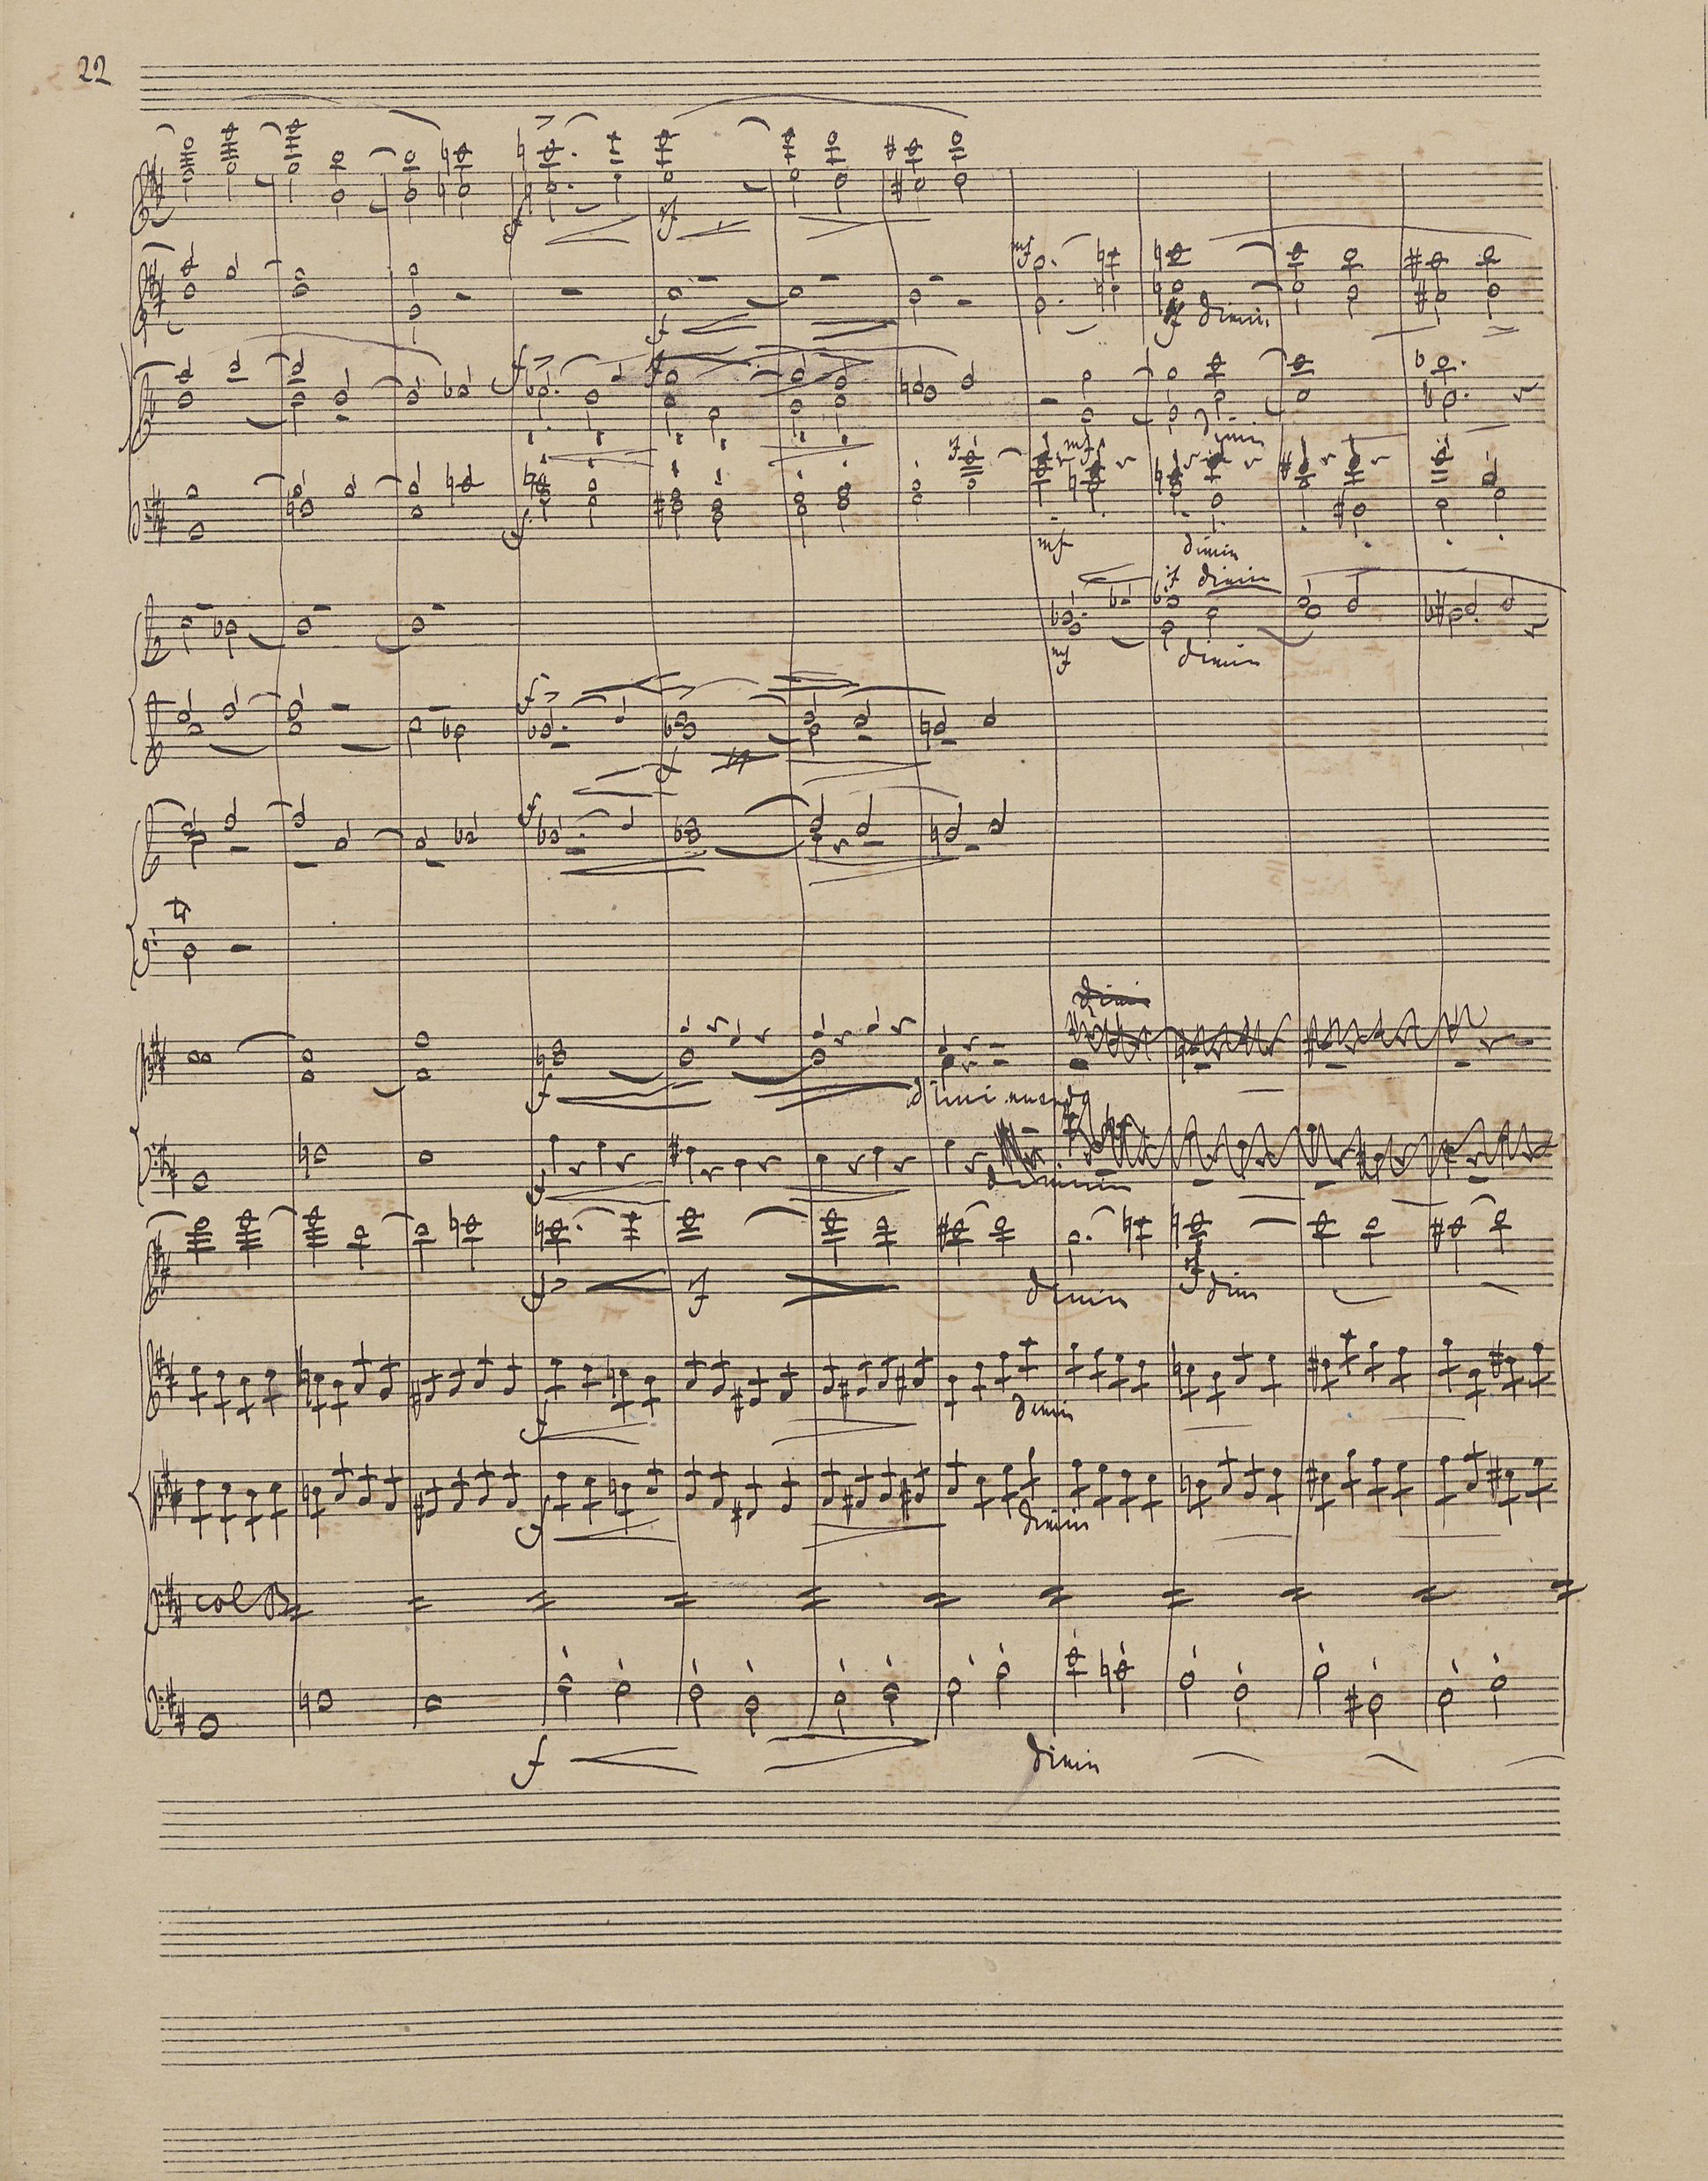 22
f
f
mf
f
dimin.
f
f
f
mf
dimin
f
mf
dimin
f dimin
mf
dimin
f
f
f
dimin
f
diminuendo
f
dimin
f
f
dimin
f
dim
f
dimin
f
dimin
col B
f
dimin